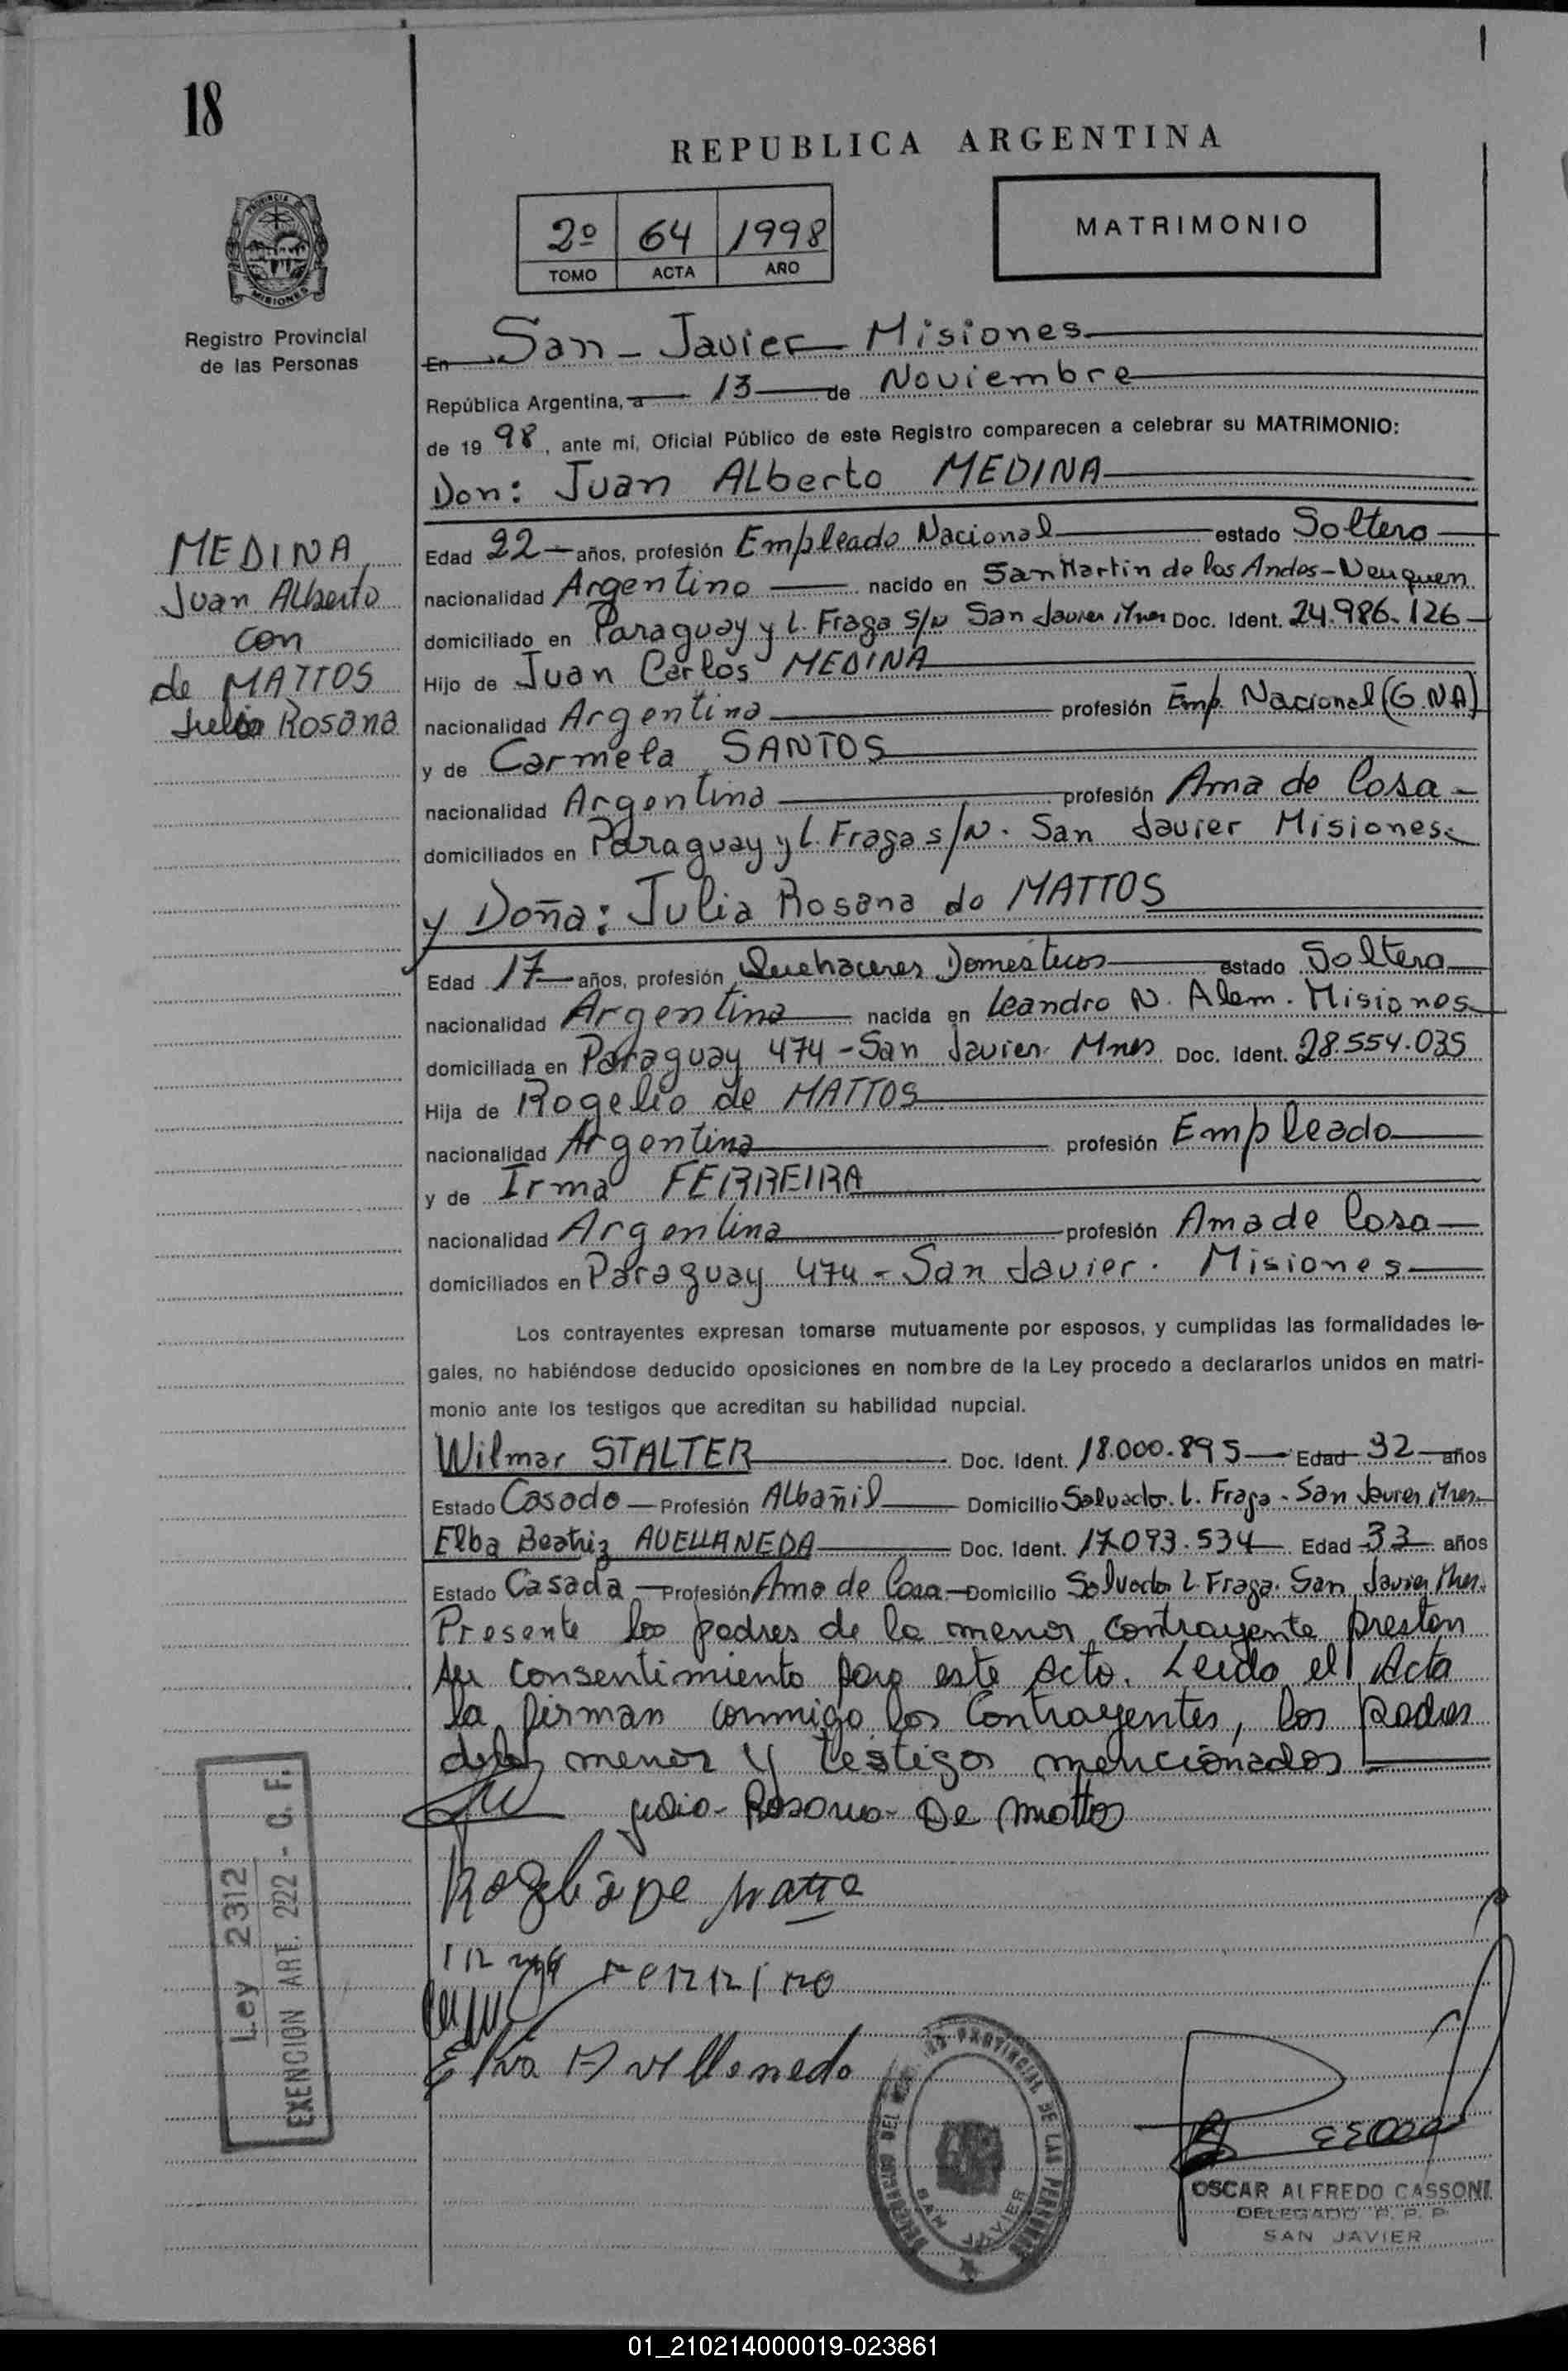 18
REPUBLICA ARGENTINA
2º 64 1998
TOMO ACTA AÑO
MATRIMONIO
PROVINCIA
MISIONES
Registro Provincial
de las Personas
En San - Javier Misiones
República Argentina, a 13 de Noviembre
de 19 98, ante mí, Oficial Público de este Registro comparecen a celebrar su MATRIMONIO:
Don: Juan Alberto MEDINA
MEDINA,
Juan Alberto
con
de MATTOS
Julia Rosana
Edad 22 años, profesión Empleado Nacional estado Soltero
nacionalidad Argentino nacido en San Martin de los Andes - Neuquen
domiciliado en Paraguay y L. Fraga S/N San Javier Mnes Doc. Ident. 24.986.126
Hijo de Juan Carlos MEDINA
nacionalidad Argentina profesión Emp. Nacional (G.NA)
y de Carmela SANTOS
nacionalidad Argentina profesión Ama de Casa
domiciliados en Paraguay y L. Fraga s/N. San Javier Misiones
y Doña: Julia Rosana de MATTOS
Edad 17 años, profesión Quehaceres Domésticos estado Soltera
nacionalidad Argentina nacida en Leandro N. Alem. Misiones
domiciliada en Paraguay 474 - San Javier Mnes Doc. Ident. 28.554.035
Hija de Rogelio de MATTOS
nacionalidad Argentina profesión Empleado
y de Irma FERREIRA
nacionalidad Argentina profesión Ama de Casa
domiciliados en Paraguay 474 - San Javier. Misiones
Los contrayentes expresan tomarse mutuamente por esposos, y cumplidas las formalidades le-
gales, no habiéndose deducido oposiciones en nombre de la Ley procedo a declararlos unidos en matri-
monio ante los testigos que acreditan su habilidad nupcial.
Wilmar STALTER Doc. Ident. 18.000.895 Edad 32 años
Estado Casado Profesión Albañil Domicilio Salvador L. Fraga - San Javier Mnes
Elba Beatriz AVELLANEDA Doc. Ident. 17.093.534 Edad 33 años
Estado Casada Profesión Ama de Casa Domicilio Salvador L. Fraga. San Javier Mnes.
Presente los padres de la menor contrayente presten
su consentimiento para este Acto. Leido el Acta
la firman conmigo los Contrayentes, los padres
de la menor y testigos mencionados
Julia - Rosana - De Mattos
Rogelio De Matto
Irma Ferrira
Elva Avellanedo
Ley 2312
EXENCION ART. 222 - C. F.
PROVINCIAL DE LAS PERSONAS
SAN JAVIER
OSCAR ALFREDO CASSONI
DELEGADO R. P. P.
SAN JAVIER
01_210214000019-023861